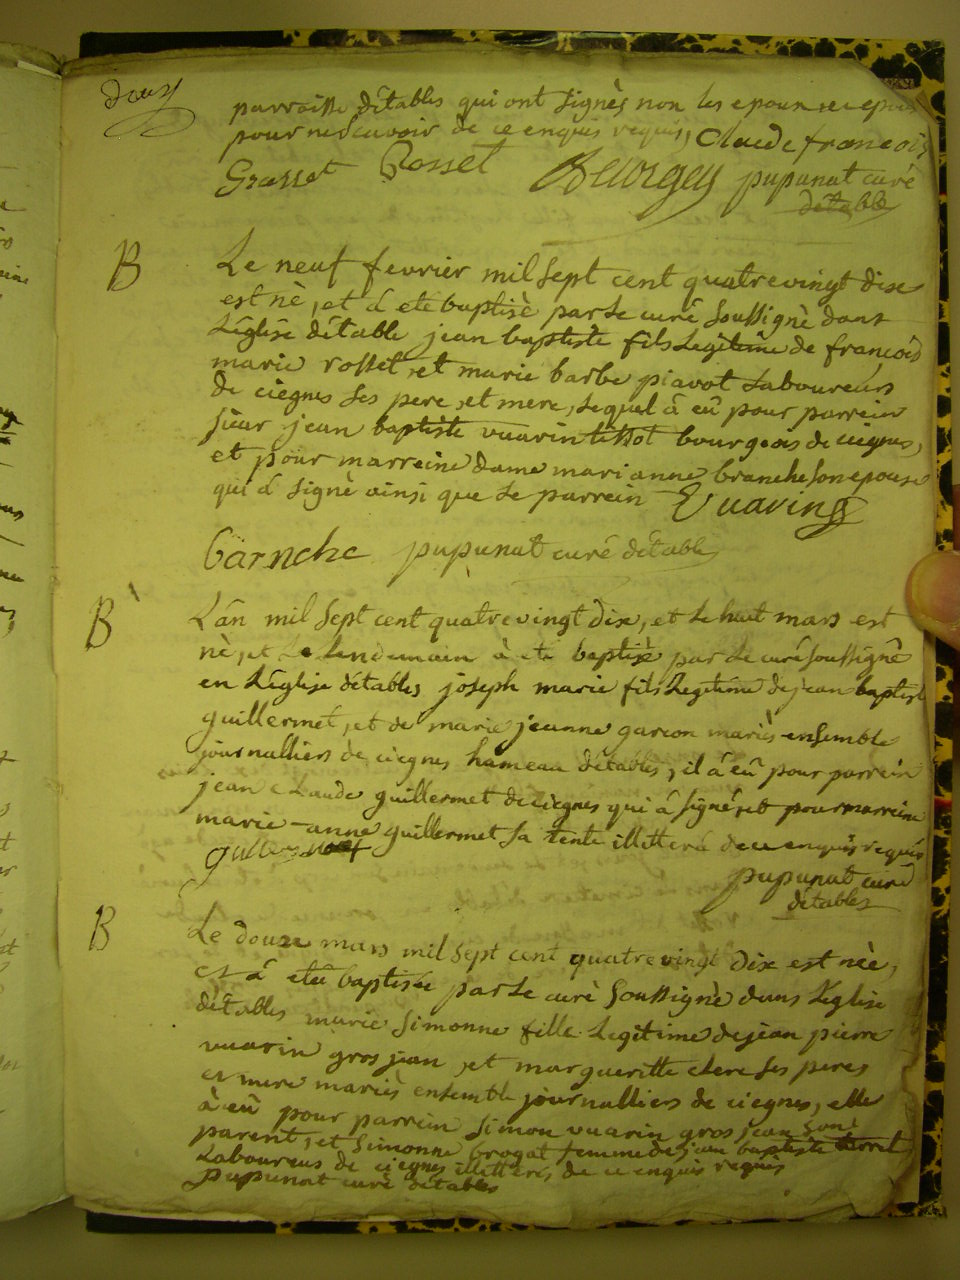 deux
parroisse d'étables qui ont signès non les epoux et epouse
pour ne sçavoir de ce enquis requis, Claude françois
Grasset Rosset Beorgey pupunat curé
détable
B Le neuf fevrier mil sept cent quatrevingt dix
est nè, et á eté baptisè par le curé soussignè dans
L'église détable jean baptiste fils Legitime de françois
marie rosset, et marie barbe piavot Laboureurs
de ciegnes ses pere, et mere, lequel â eû pour parrein
sieur jean baptiste vuarin tissot bourgeois de ciegnes,
et pour marreine dame marianne branche son epouse
qui á signè ainsi que le parrein Vuarin
barnche pupunat curé détable
B L'ân mil sept cent quatrevingt dix, et le huit mars est
nè, et Le Lendemain à eté baptisè par le curé soussignè
en L'église détables joseph marie fils Legitime de jean baptiste
guillermet, et de marie jeanne garcon mariès ensemble
journalliers de ciegnes hameau détables, il â eû pour parrein
jean claude guillermet de ciegnes qui â signé, et pour marreine
marie-anne guillermet sa tente illitteré de ce enquis requis
guillermet
pupunat curé
détables
B Le douze mars mil sept cent quatre vingt dix est nèe,
et â etée baptisée par le curè soussignè dans l'église
détables marie simonne fille Legitime de jean pierre
vuarin gros jean, et margueritte clere ses peres
et mere mariès ensemble journalliers de ciegnes, elle
à eû pour parrein simon vuarin gros jean son
parent, et simonne brogat femme de jean baptiste
Laboureurs de ciegnes illitterès, de ce enquis requis
pupunat curé détables